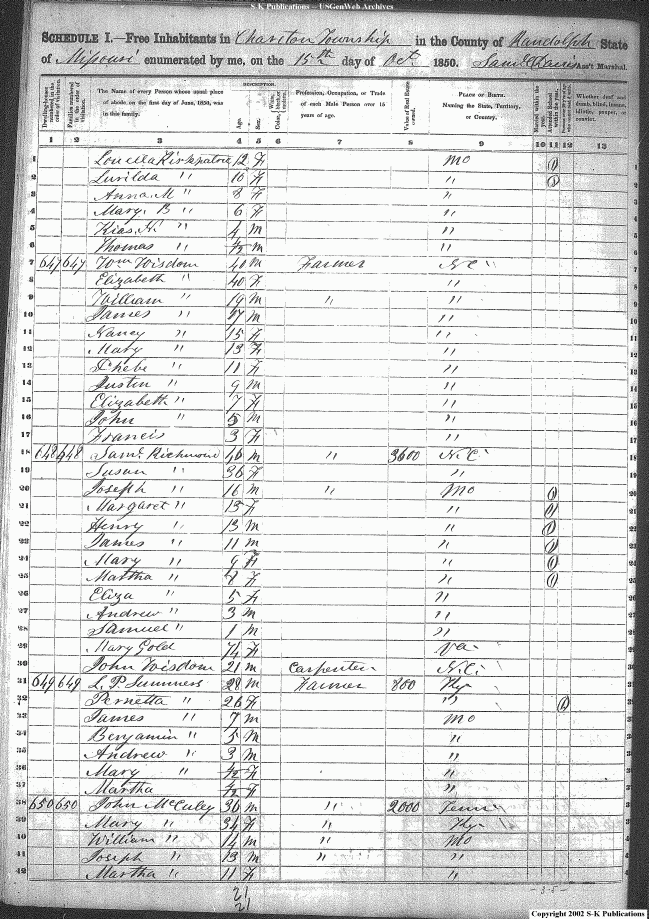 S-K Publications - USGenWeb Archives
SCHEDULE I.—Free Inhabitants in Chariton Township in the County of Randolph State
of Missouri enumerated by me, on the 15th day of Oct 1850. Saml Davis Ass't Marshal.
Dwelling-houses numbered in the order of visitation.
Families numbered in the order of visitation.
The Name of every Person whose usual place of abode on the first day of June, 1850, was in this family.
DESCRIPTION.
Age.
Sex.
Color, White, black, or mulatto.
Profession, Occupation, or Trade of each Male Person over 15 years of age.
Value of Real Estate owned.
PLACE OF BIRTH. Naming the State, Territory, or Country.
Married within the year.
Attended School within the year.
Whether deaf and dumb, blind, insane, idiotic, pauper, or convict.
1 2 3 4 5 6 7 8 9 10 11 12 13
1 Kirkpatric 12 F Mo 1
2 Lurilda " 10 F " 1
3 Anna M " 8 F "
4 Mary B " 6 F "
5 " 4 M "
6 Thomas " M "
7 647 647 Wm Wisdom 40 M Farmer N.C.
8 Elizabeth " 40 F "
9 William " 19 M " "
10 James " 17 M "
11 Nancy " 15 F "
12 Mary " 13 F "
13 Phebe " 11 F "
14 Justin " 9 M "
15 Elizabeth " 7 F "
16 John " 5 M "
17 Francis 3 F "
18 648 648 Saml Richmond 46 M " 3600 N.C.
19 Susan " 36 F "
20 Joseph " 16 M " Mo 1
21 Margaret " 15 F " 1
22 Henry " 13 M " 1
23 James " 11 M " 1
24 Mary " 9 F " 1
25 Martha " 8 F " 1
26 Eliza " 5 F "
27 Andrew " 3 M "
28 Samuel " 1 M "
29 Mary Gold 74 F Va
30 John Wisdom 21 M Carpenter N.C.
31 649 649 L. P. Summers 28 M Farmer 800 Ky
32 Pernetta " 26 F " 1
33 James " 7 M Mo
34 Benjamin " 5 M "
35 Andrew " 3 M "
36 Mary " F "
37 Martha F "
38 650 650 John McCuley 36 M " 2000 Tenn
39 Mary " 34 F " Ky
40 William " 14 M " Mo
41 Joseph " 13 M " "
42 Martha " 11 F "
21
21
-35-
Copyright 2002 S-K Publications